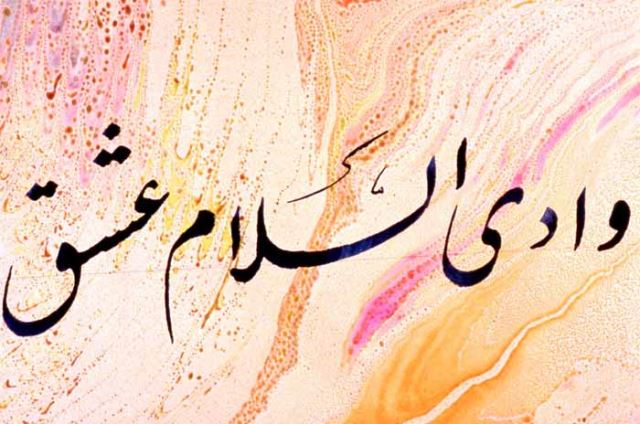 وادی السلام عشق